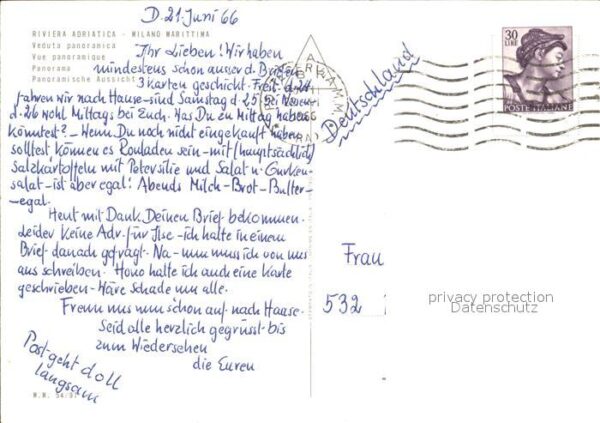 D. 21. Juni 66
RIVIERA ADRIATICA - MILANO MARITTIMA
Veduta panoramica
Vue panoramique
Panorama
Panoramische Aussicht
Ihr Lieben! Wir haben
mindestens schon ausser d. Briefen
3 Karten geschickt. Freit. d. 24.
fahren wir nach Hause - sind Samstag d. 25. bei
d. 26 wohl Mittags bei Euch. Was Du zu Mittag haben
könntest? - Wenn Du noch nicht eingekauft haben
solltest können es Rouladen sein - mit (hauptsächlich)
Salzkartoffeln mit Petersilie und Salat u. Gurken-
salat - ist aber egal! Abends Milch-Brot-Butter-
-egal.
Heut mit Dank Deinen Brief bekommen.
Leider keine Adr. für Ilse - ich hatte in einem
Brief danach gefragt. Na - nun muss ich von uns
aus schreiben. hatte ich auch eine Karte
geschrieben - Wäre schade um alle.
Freun uns nun schon auf nach Hause.
Seid alle herzlich gegrüsst bis
zum Wiedersehen
die Euren
Post geht doll
langsam
Deutschland
30
LIRE
POSTE ITALIANE
Frau
532
privacy protection
Datenschutz